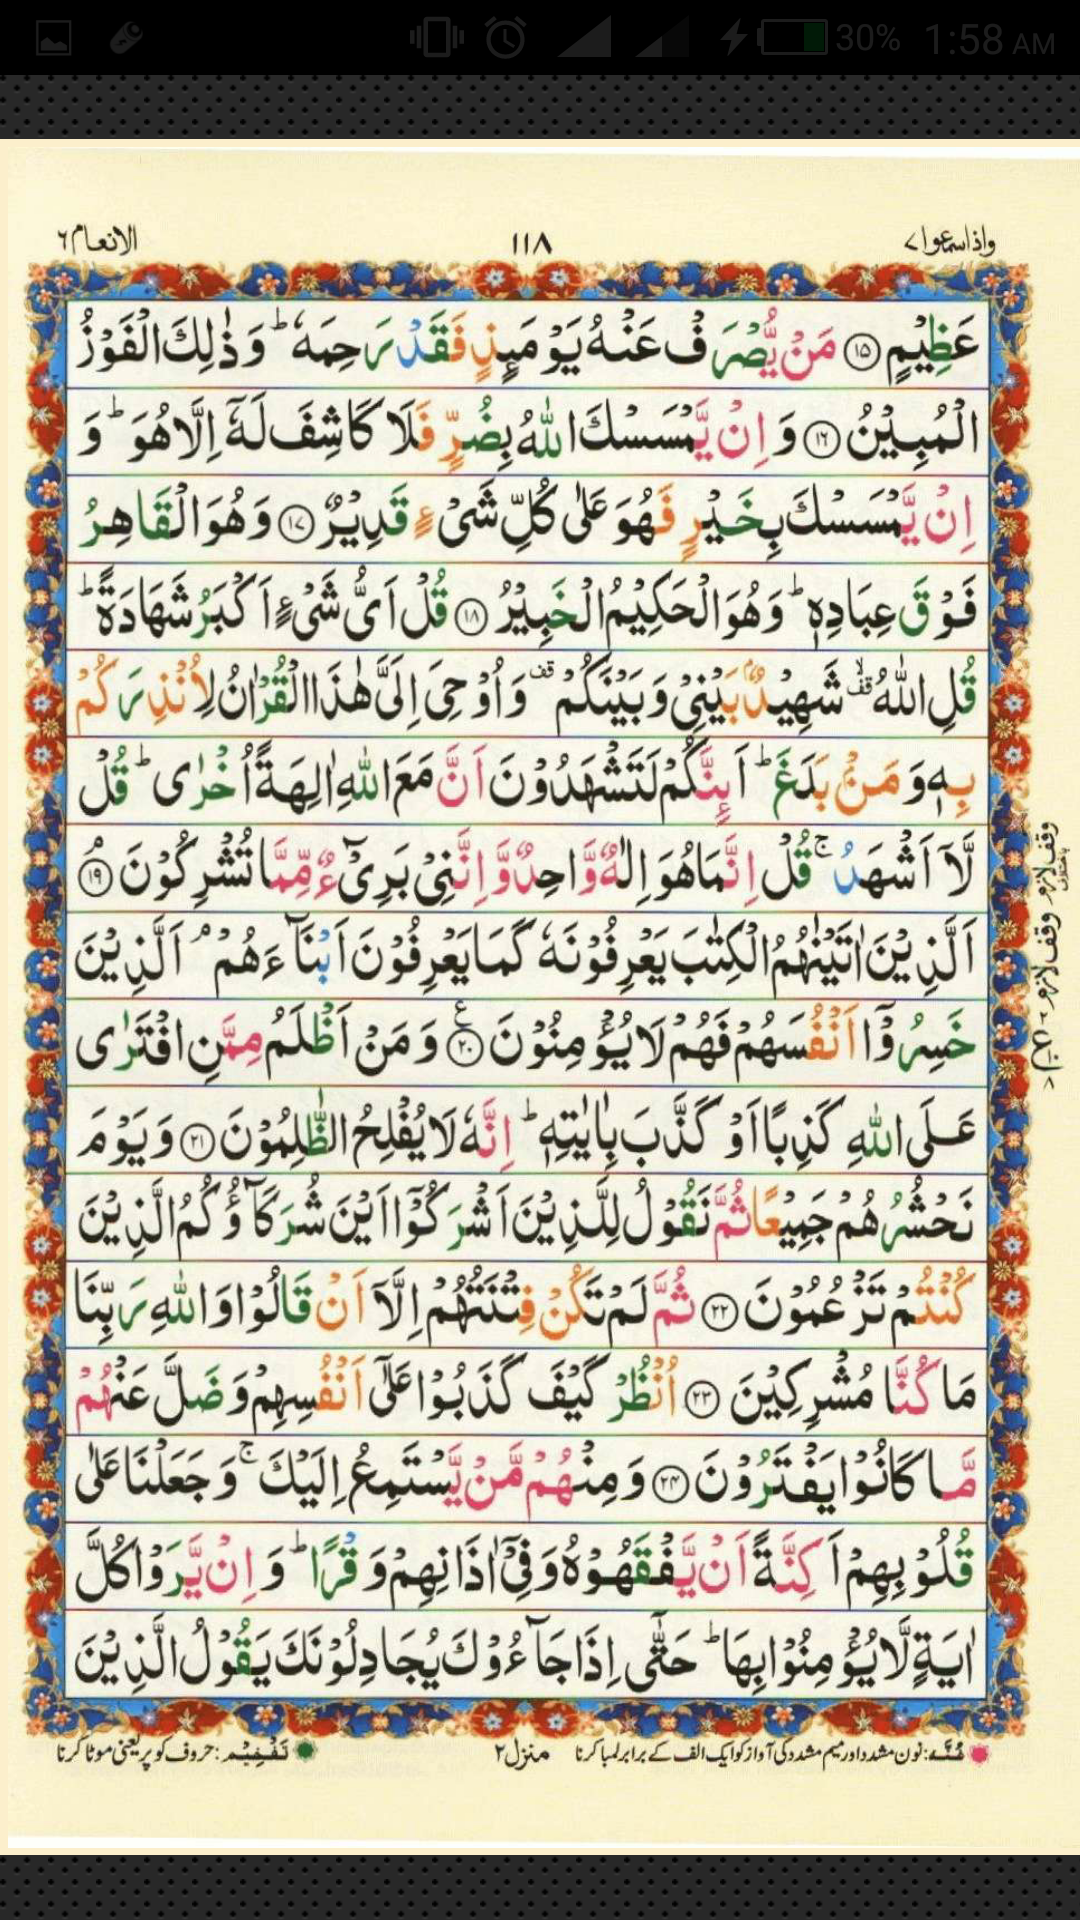 30% 1:58 AM
واذاسمعوا۷ ۱۱۸ الانعام۶
عَظِيْمٍ ۝۱۵ مَنْ يُّصْرَفْ عَنْهُ يَوْمَئِذٍ فَقَدْ رَحِمَهٗ ؕ وَذٰلِكَ الْفَوْزُ
الْمُبِيْنُ ۝۱۶ وَاِنْ يَّمْسَسْكَ اللّٰهُ بِضُرٍّ فَلَا كَاشِفَ لَهٗۤ اِلَّا هُوَ ؕ وَ
اِنْ يَّمْسَسْكَ بِخَيْرٍ فَهُوَ عَلٰى كُلِّ شَىْءٍ قَدِيْرٌ ۝۱۷ وَهُوَ الْقَاهِرُ
فَوْقَ عِبَادِهٖ ؕ وَهُوَ الْحَكِيْمُ الْخَبِيْرُ ۝۱۸ قُلْ اَىُّ شَىْءٍ اَكْبَرُ شَهَادَةً ؕ
قُلِ اللّٰهُ ۙقف شَهِيْدٌۢ بَيْنِىْ وَبَيْنَكُمْ قف وَاُوْحِىَ اِلَىَّ هٰذَا الْقُرْاٰنُ لِاُنْذِرَكُمْ
بِهٖ وَمَنْۢ بَلَغَ ؕ اَئِنَّكُمْ لَتَشْهَدُوْنَ اَنَّ مَعَ اللّٰهِ اٰلِهَةً اُخْرٰى ؕ قُلْ
لَّاۤ اَشْهَدُ ۚ قُلْ اِنَّمَا هُوَ اِلٰهٌ وَّاحِدٌ وَّاِنَّنِىْ بَرِىْٓءٌ مِّمَّا تُشْرِكُوْنَ ۘ۝۱۹
اَلَّذِيْنَ اٰتَيْنٰهُمُ الْكِتٰبَ يَعْرِفُوْنَهٗ كَمَا يَعْرِفُوْنَ اَبْنَآءَهُمْ ۘ اَلَّذِيْنَ
خَسِرُوْۤا اَنْفُسَهُمْ فَهُمْ لَا يُؤْمِنُوْنَ ۝۲۰ع وَمَنْ اَظْلَمُ مِمَّنِ افْتَرٰى
عَلَى اللّٰهِ كَذِبًا اَوْ كَذَّبَ بِاٰيٰتِهٖ ؕ اِنَّهٗ لَا يُفْلِحُ الظّٰلِمُوْنَ ۝۲۱ وَيَوْمَ
نَحْشُرُهُمْ جَمِيْعًا ثُمَّ نَقُوْلُ لِلَّذِيْنَ اَشْرَكُوْۤا اَيْنَ شُرَكَآؤُكُمُ الَّذِيْنَ
كُنْتُمْ تَزْعُمُوْنَ ۝۲۲ ثُمَّ لَمْ تَكُنْ فِتْنَتُهُمْ اِلَّاۤ اَنْ قَالُوْا وَاللّٰهِ رَبِّنَا
مَا كُنَّا مُشْرِكِيْنَ ۝۲۳ اُنْظُرْ كَيْفَ كَذَبُوْا عَلٰۤى اَنْفُسِهِمْ وَضَلَّ عَنْهُمْ
مَّا كَانُوْا يَفْتَرُوْنَ ۝۲۴ وَمِنْهُمْ مَّنْ يَّسْتَمِعُ اِلَيْكَ ۚ وَجَعَلْنَا عَلٰى
قُلُوْبِهِمْ اَكِنَّةً اَنْ يَّفْقَهُوْهُ وَفِىْۤ اٰذَانِهِمْ وَقْرًا ؕ وَاِنْ يَّرَوْا كُلَّ
اٰيَةٍ لَّا يُؤْمِنُوْا بِهَا ؕ حَتّٰۤى اِذَا جَآءُوْكَ يُجَادِلُوْنَكَ يَقُوْلُ الَّذِيْنَ
وقف لازم وقف لازم
غُنَّه: نون مشدد اور میم مشدد کی آواز کو ایک الف کے برابر لمبا کرنا منزل۲ تَفْخِيْم: حروف کو پر یعنی موٹا کرنا